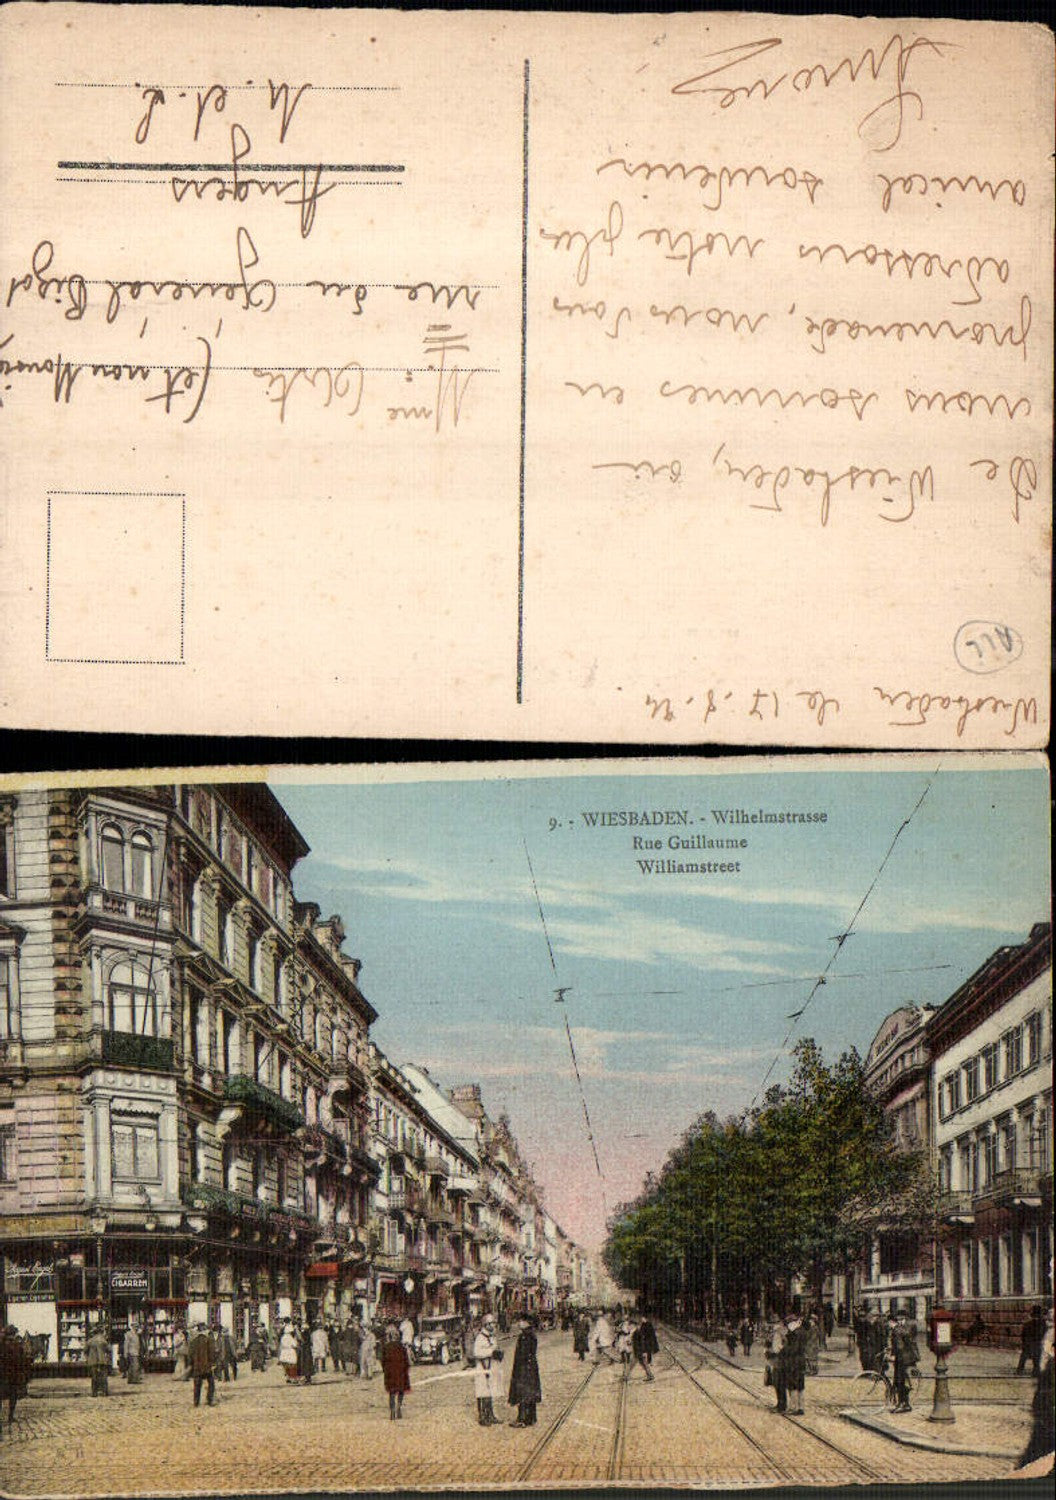 Wiesbaden le 17.8.24
De Wiesbaden, où
nous sommes en
promenade, nous vous
adressons notre plus
amical souvenir
Simone
Mme Curtis (et non Monsi
M.
rue du Général Bizot
Angers
M. et. L.
ALL
9. - WIESBADEN. - Wilhelmstrasse
Rue Guillaume
Williamstreet
CIGARREN